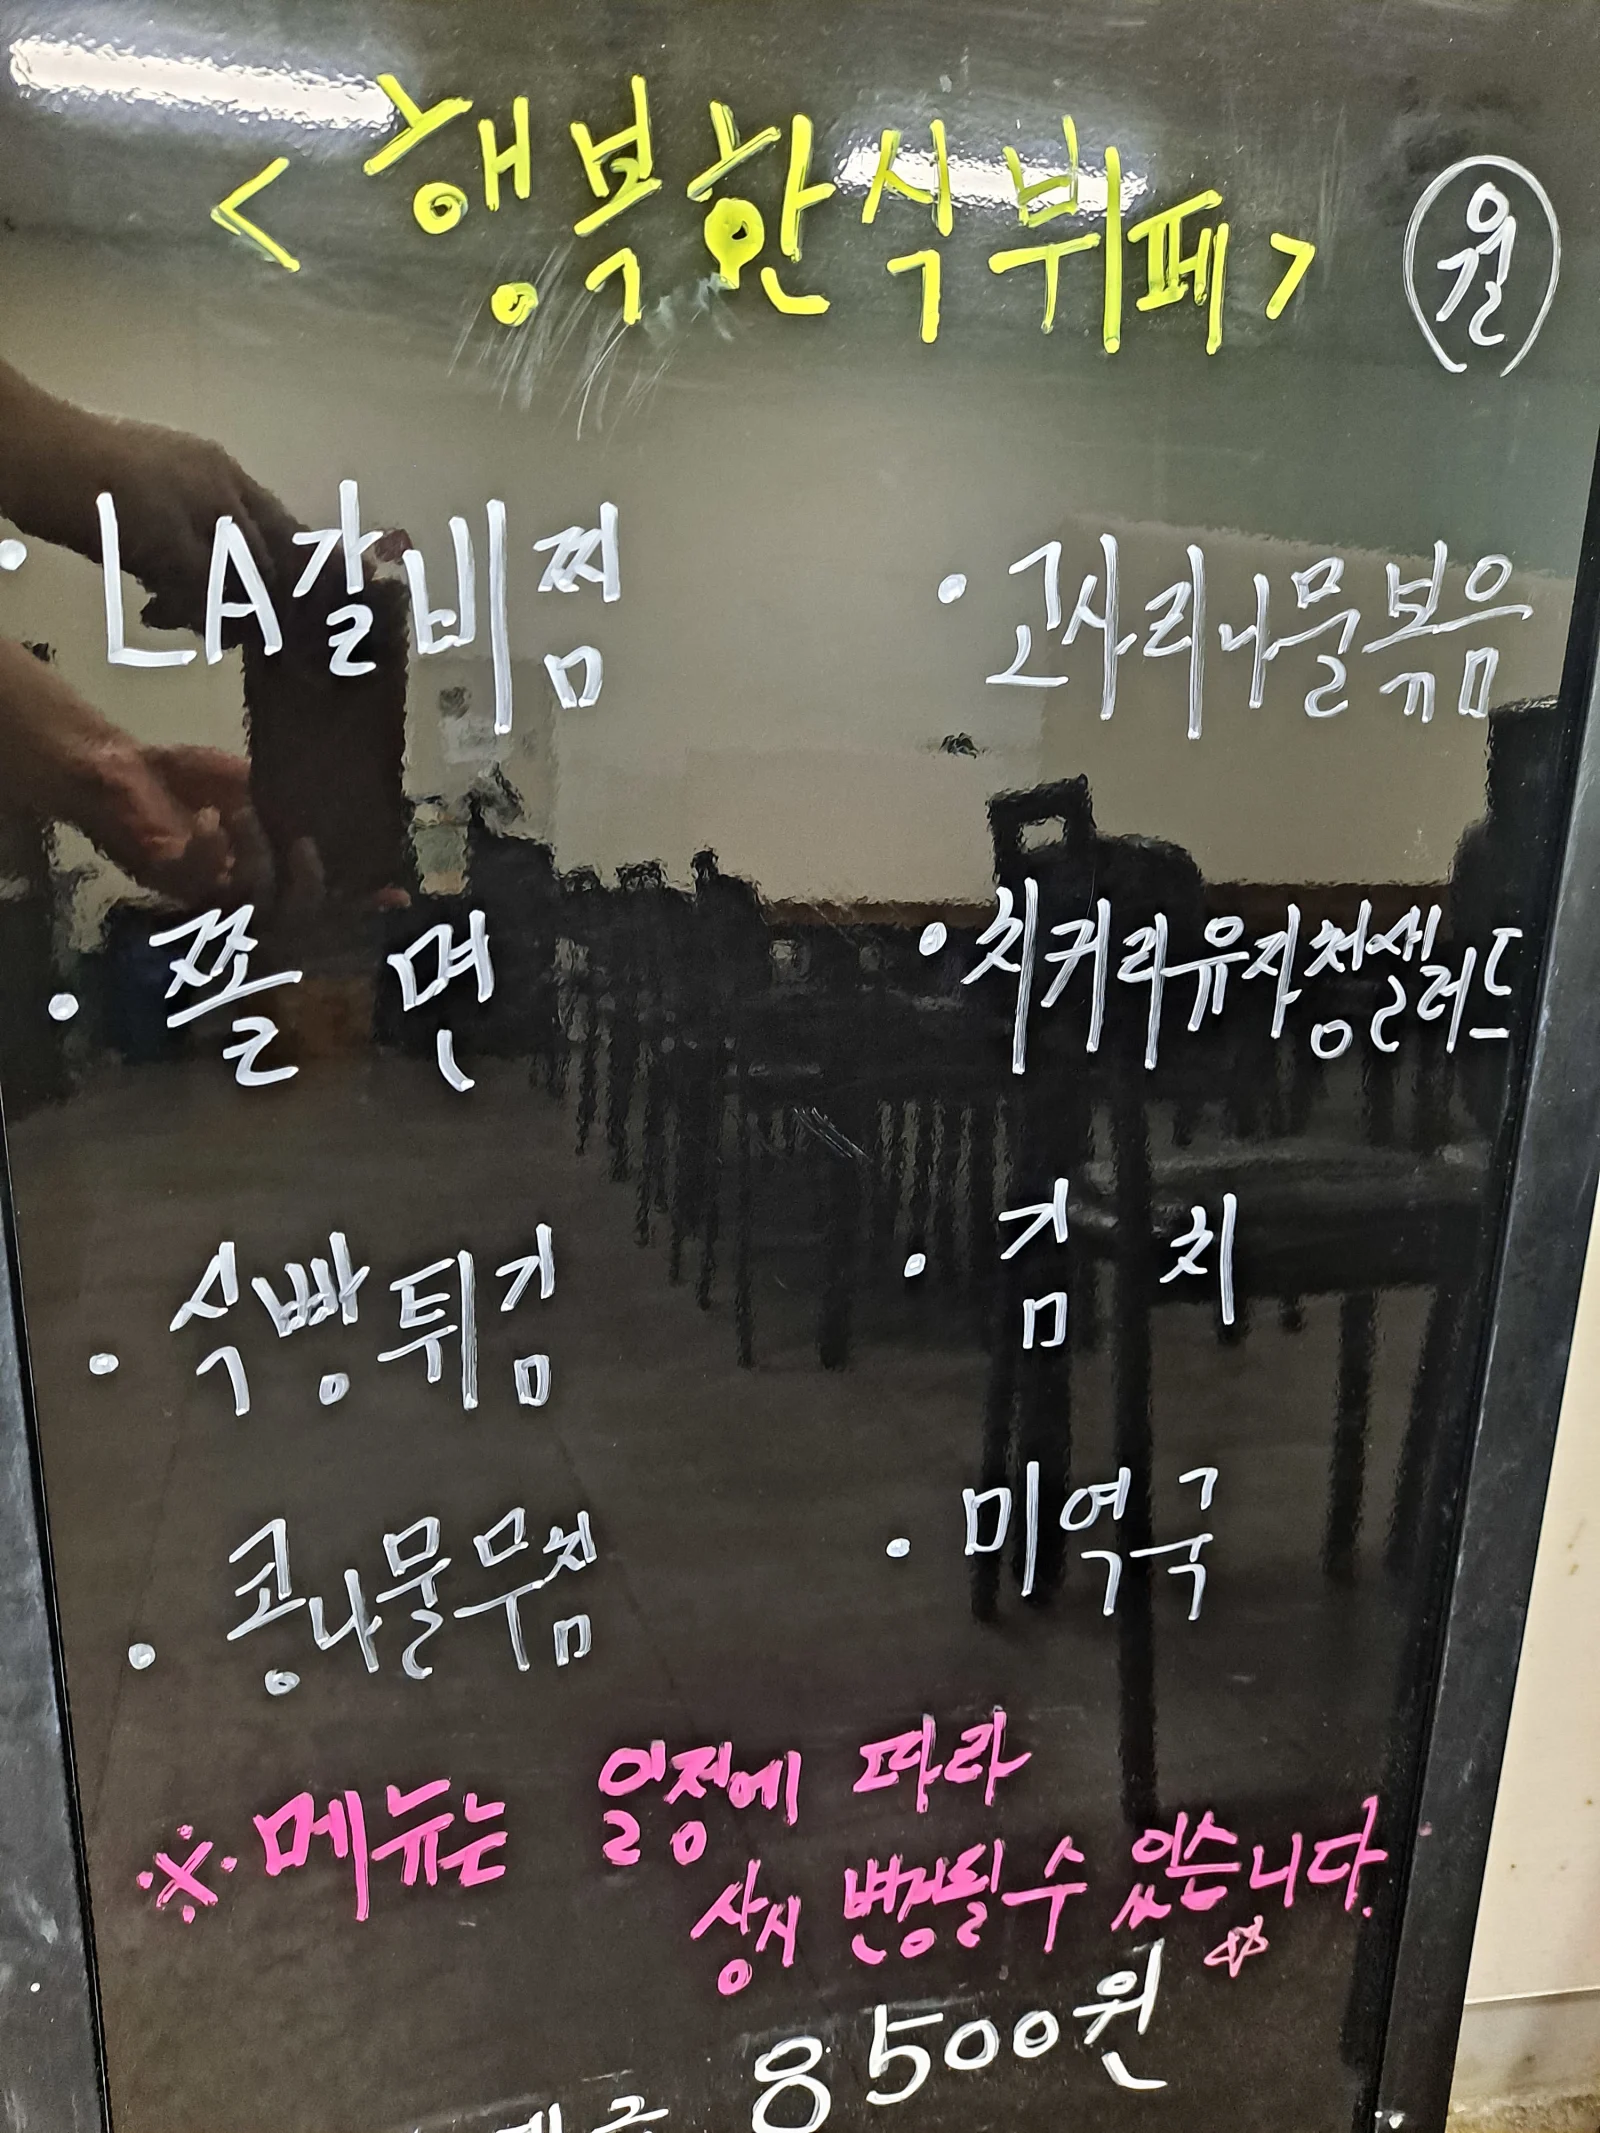 <행복한식뷔페> 월
· LA갈비찜
· 고사리나물볶음
· 쫄 면
· 치커리유자청샐러드
· 식빵튀김
· 김 치
· 콩나물무침
· 미역국
※ 메뉴는 일정에 따라
상시 변경될 수 있습니다.
8500원